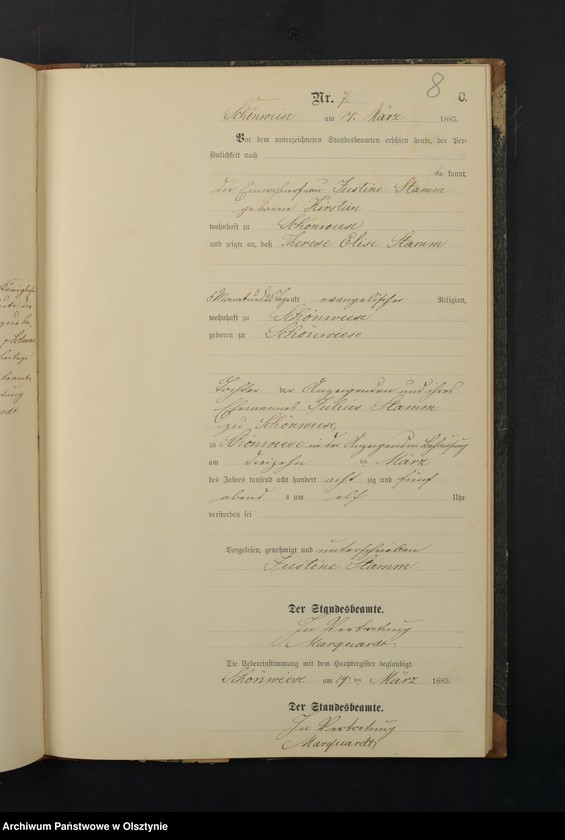 8
Nr. 7. C.
Schönwiese am 14. März 1885.
Vor dem unterzeichneten Standesbeamten erschien heute, der Per-
sönlichkeit nach
be kannt,
die Einwohnerfrau Justine Stamm
geborne Kirstein
wohnhaft zu Schönwiese
und zeigte an, daß Therese Elise Stamm
5 Monat und Tage alt evangelischer Religion,
wohnhaft zu Schönwiese
geboren zu Schönwiese
Tochter der Anzeigenden und ihres
Ehemannes Julius Stamm
zu Schönwiese
zu Schönwiese in der Anzeigenden Behausung
am dreizehn ten März
des Jahres tausend acht hundert acht zig und fünf
abend s um elf Uhr
verstorben sei
Vorgelesen, genehmigt und unterschrieben
Justine Stamm
Der Standesbeamte.
In Vertretung
Marquardt
Die Uebereinstimmung mit dem Hauptregister beglaubigt.
Schönwiese am 14 ten März 1885.
Der Standesbeamte.
In Vertretung
Marquardt
Archiwum Państwowe w Olsztynie